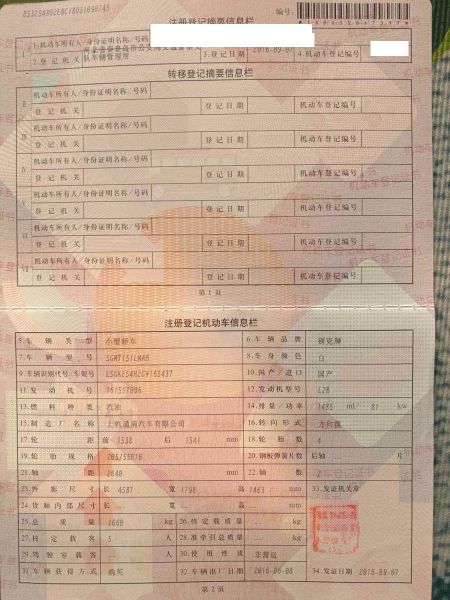 注册登记摘要信息栏
编号:
1.机动车所有人/身份证明名称/号码
2.登记机关 队车辆管理所 3.登记日期 2016-09-07 4.机动车登记编号
转移登记摘要信息栏
机动车所有人/身份证明名称/号码
登记机关 登记日期 机动车登记编号
机动车所有人/身份证明名称/号码
登记机关 登记日期 机动车登记编号
机动车所有人/身份证明名称/号码
登记机关 登记日期 机动车登记编号
机动车所有人/身份证明名称/号码
登记机关 登记日期 机动车登记编号
机动车所有人/身份证明名称/号码
登记机关 登记日期 机动车登记编号
机动车所有人/身份证明名称/号码
登记机关 登记日期 机动车登记编号
第1页
注册登记机动车信息栏
5.车辆类型 小型轿车 6.车辆品牌 别克牌
7.车辆型号 SGM7151LWAB 8.车身颜色 白
9.车辆识别代号/车架号 10.国产/进口 国产
11.发动机号 161597096 12.发动机型号 L2B
13.燃料种类 汽油 14.排量/功率 1485 ml/ 81 kw
15.制造厂名称 上汽通用汽车有限公司 16.转向形式 方向盘
17.轮距 前 1538 后 1541 mm 18.轮胎数 4
19.轮胎规格 205/55R16 20.钢板弹簧片数 后轴 片
21.轴距 2640 mm 22.轴数 2
23.外廓尺寸 长 4587 宽 1798 高 1463 mm 33.发证机关章
24.货厢内部尺寸 长 宽 高 mm
25.总质量 1660 kg 26.核定载质量 kg
27.核定载客 5 人 28.准牵引总质量 kg
29.驾驶室载客 人 30.使用性质 非营运
31.车辆获得方式 购买 32.车辆出厂日期 2016-06-08 34.发证日期 2016-09-07
第2页